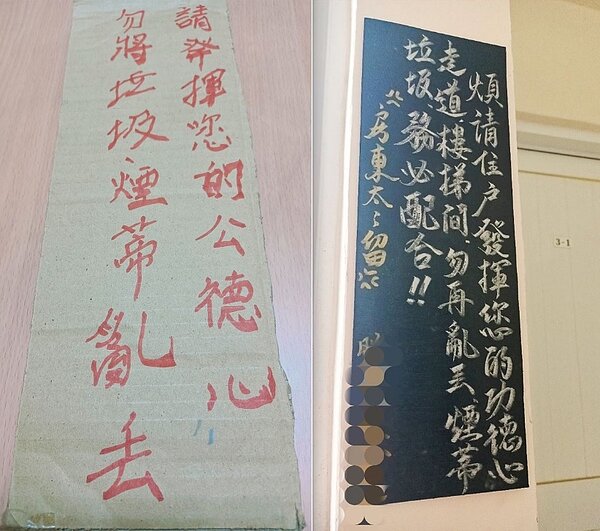 請發揮您的公德心
勿將垃圾、煙蒂亂丟
煩請住戶發揮您的功德心
走道、樓梯間、勿再亂丟、煙蒂
垃圾、務必配合!!
房東太々留
3-1